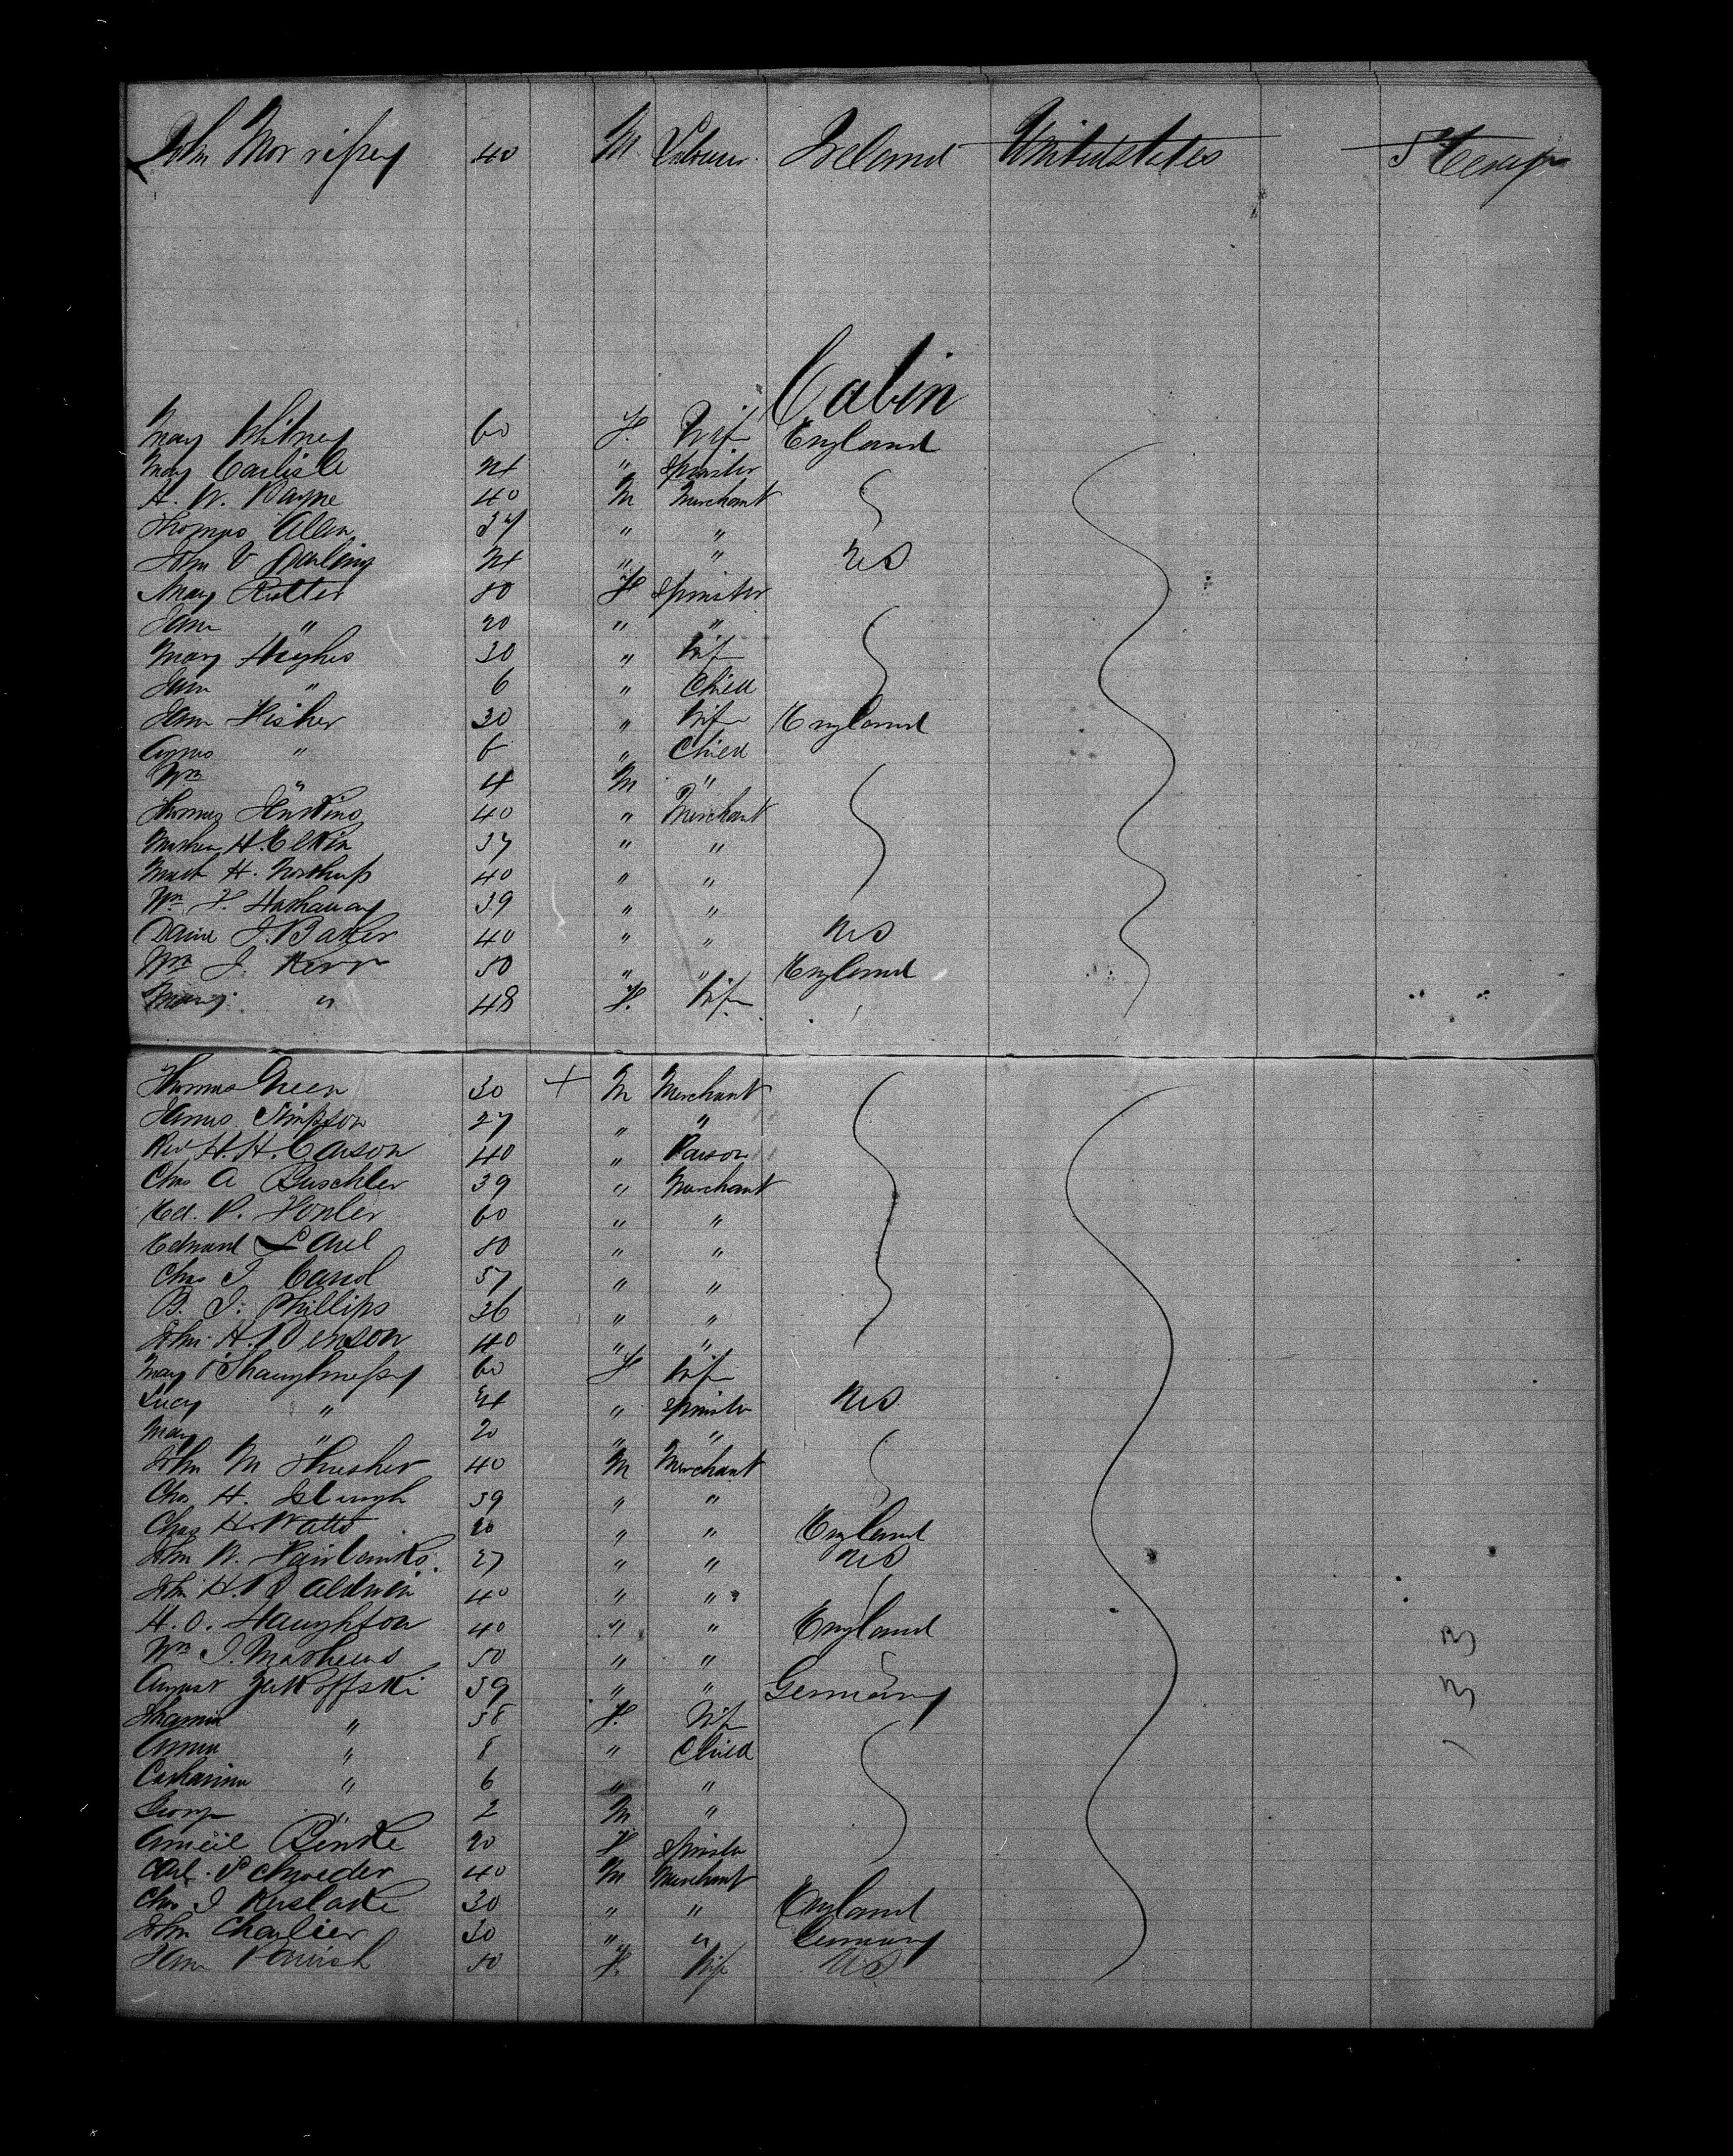 John Morrissey 40 M Ireland United States
Cabin
Mary Whitney 60 F. Wife England
Mary Carlisle 24 " Spinster
H. W. Payne 40 M Merchant
Thomas Allen 37 " "
John V Darling 24 " " US
Mary Rutter 50 F Spinster
Jane " 20 " "
Mary Hughes 30 " Wife
Jane " 6 " Child
Jane Fisher 30 " Wife England
Agnes " 6 " Child
Wm " 4 M "
Thomas Jenkins 40 " Merchant
H. Elkin 37 " "
H. Northup 40 " "
Wm F. Hathaway 39 " "
J. Baker 40 " " US
Wm J. Kerr 50 " " England
Mary " 48 F. Wife
Thomas Green 30 + M Merchant
James Simpson 27 " "
Rev H. H. Carson 40 " Parson
Chas A Buschler 39 " Merchant
Ed. P. 60 " "
Edward 50 " "
Chas J Carrol 37 " "
B. J. Phillips 36 " "
John H. Benson 40 " "
Mary O'Shaughnessy 60 F Wife
Lucy " 24 " Spinster US
Mary " 20 " "
John M Thresher 40 M Merchant
Chas H. 39 " "
Chas H. Watts 20 " " England
John W. Fairbanks 27 " " US
John H. Baldwin 40 " "
H. O. Haughton 40 " " England
Wm J. Mathews 50 " "
August Zukoffski 39 " " Germany
" 38 F. Wife
Anna " 8 " Child
Catharina " 6 " "
George " 2 M "
20 F Spinster
Carl Schroeder 40 M Merchant
Chas J Kerslake 30 " " England
John Charlier 30 " " Germany
Jane Parrish 50 F. Wife US